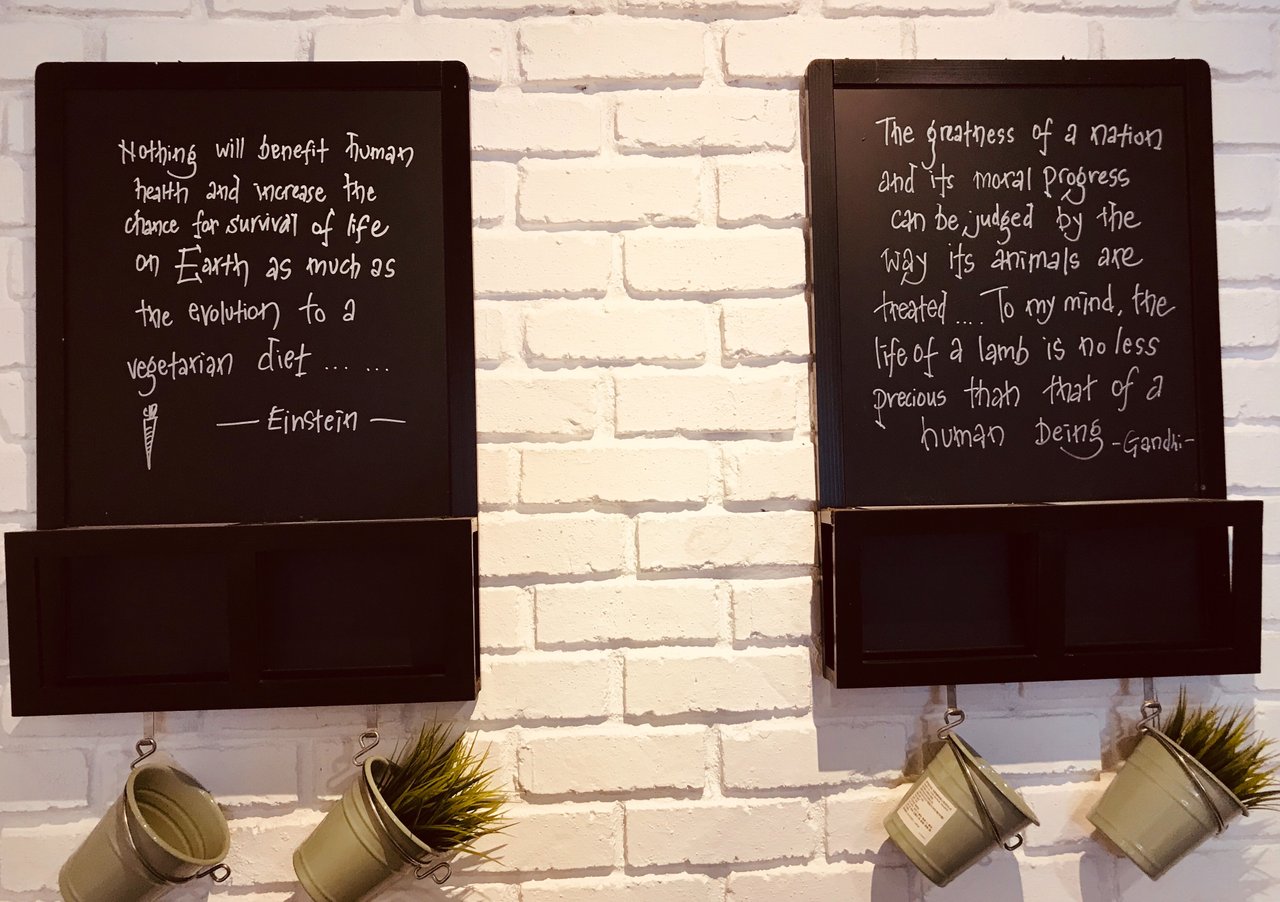 Nothing will benefit human
health and increase the
chance for survival of life
on Earth as much as
the evolution to a
vegetarian diet ... ...
— Einstein —
The greatness of a nation
and its moral progress
can be judged by the
way its animals are
treated .... To my mind, the
life of a lamb is no less
precious than that of a
human being -Gandhi-